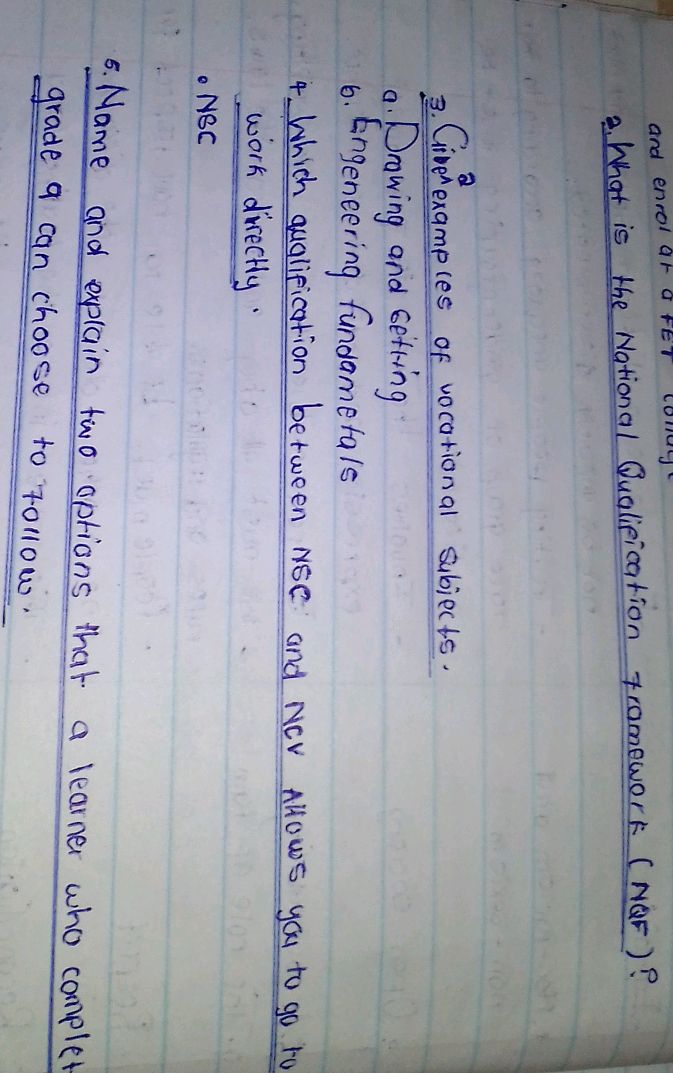 and enrol at a FET
2. What is the National Qualification framework (NQF)?
3. Give 2 examples of vocational subjects.
a. Drawing and setting
b. Engeneering fundametals
4. Which qualification between NSC and NCV Allows you to go to
work directly.
• NSC
5. Name and explain two options that a learner who complet
grade 9 can choose to follow.